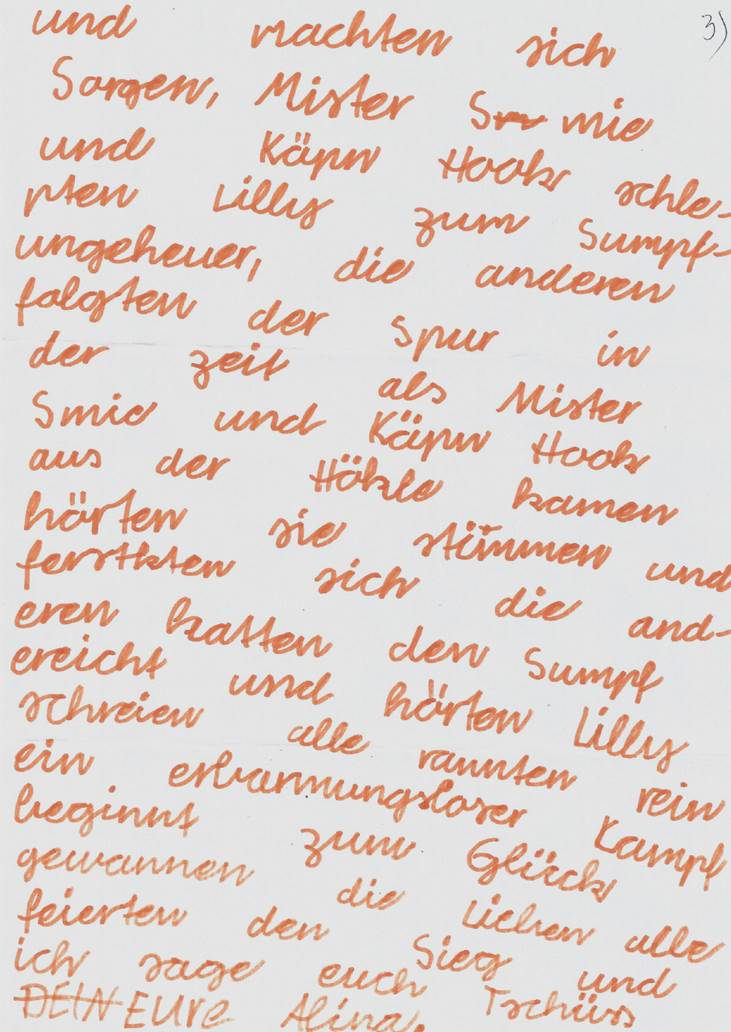 3)
und machten sich
Sorgen, Mister Sm mie
und Käpn Hook schle-
pten Lilly zum Sumpf-
ungeheuer, die anderen
folgten der Spur in
der zeit als Mister
Smie und Käpn Hook
aus der Höhle kamen
hörten sie stimmen und
ferstkten sich die and-
eren hatten den Sumpf
ereicht und hörten Lilly
schreien alle rannten rein
ein erbarmungsloser Kampf
beginnt zum Glück
gewannen die Lieben alle
feierten den Sieg und
ich sage euch Tschüss
DEIN EURE Alina.